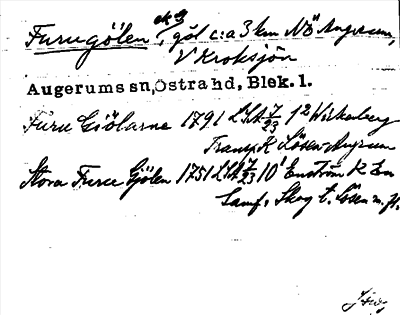 Furugölen, göl c:a 3 km NÖ Augerum,
V Kroksjön
Augerums sn, Östra hd, Blek. l.
Furu Giölarne 1791 LSA 7/23 1² Wirkeberg
Transp. K Lösen Augerum
Stora Furu Gjölen 1751 LSA 7/23 10¹ Enström K En
Samf. Skog t. Lösen m.fl.